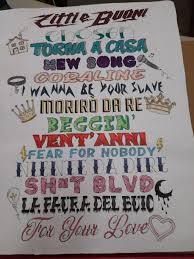 Zitti e Buoni
CHOSEN
TORNA A CASA
NEW SONG
CORALINE
I WANNA BE YOUR SLAVE
MORIRÒ DA RE
BEGGIN'
VENT'ANNI
FEAR FOR NOBODY
SH*T BLVD
LA PAURA DEL BUIO
For Your Love